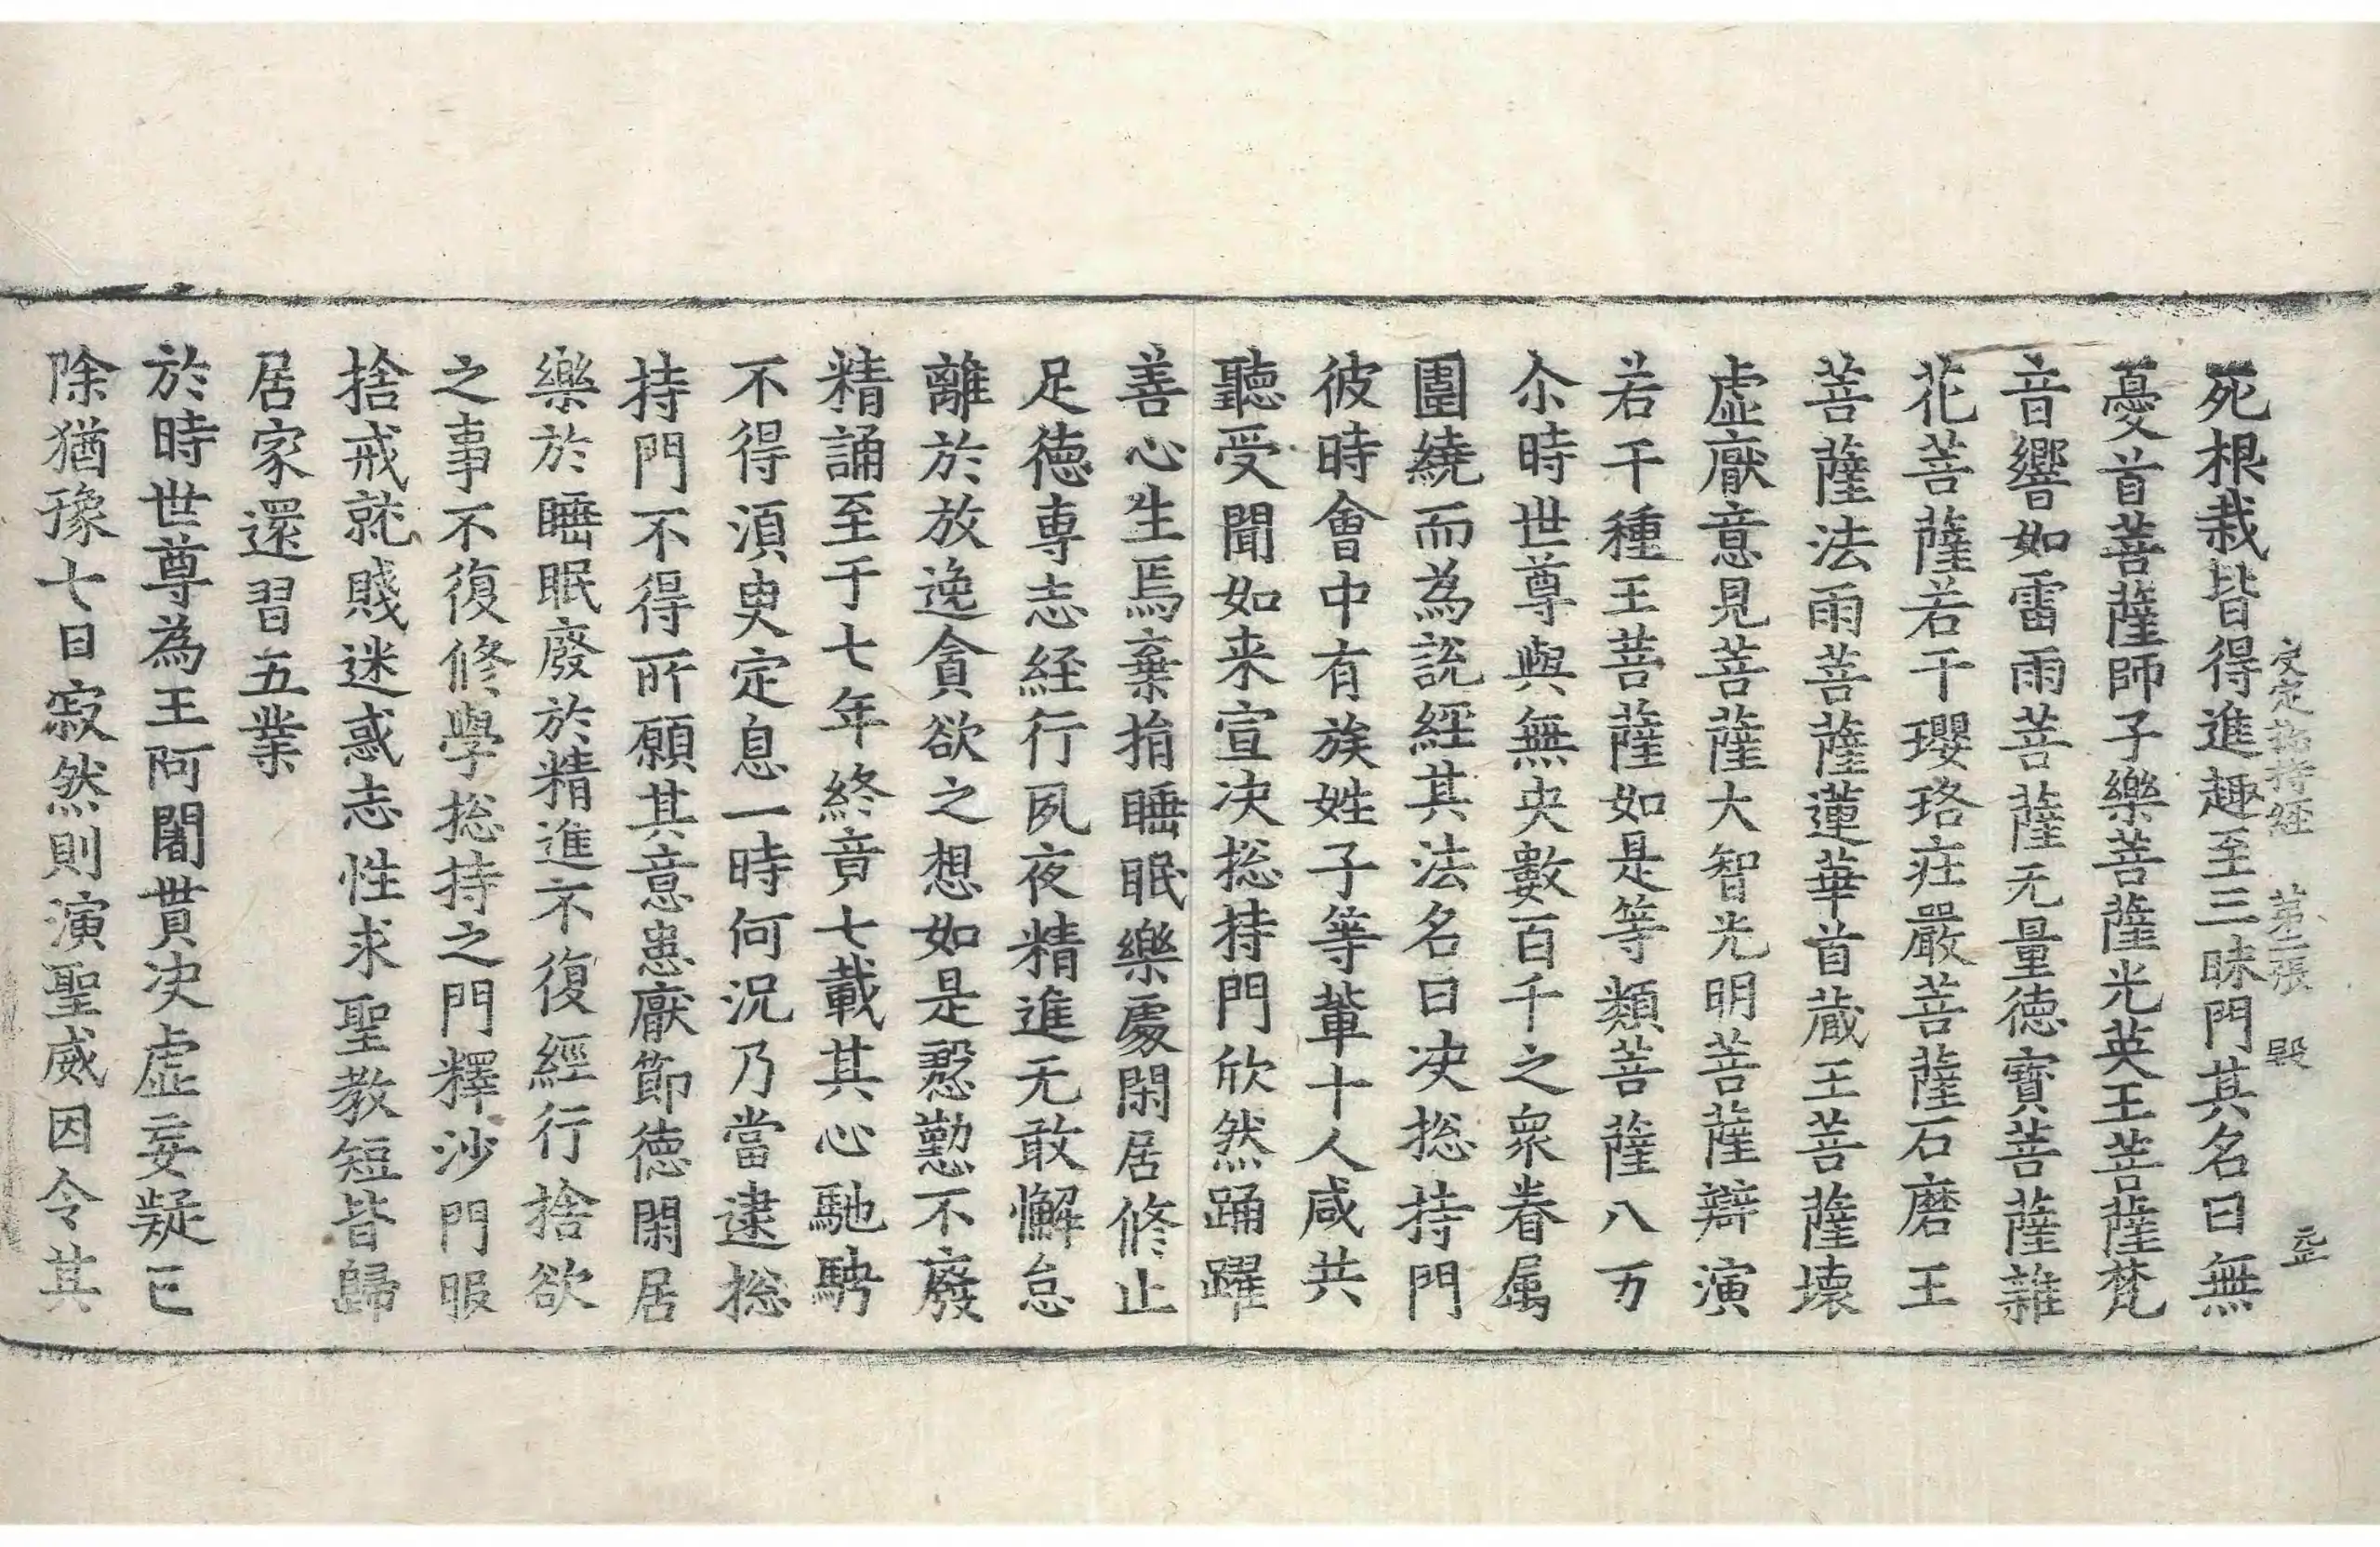 决定揔持經 第二張 毁
死根栽皆得進趣至三昧門其名曰無
憂首菩薩師子樂菩薩光英王菩薩梵
音響如雷雨菩薩无量徳寶菩薩離
花菩薩若干瓔珞荘嚴菩薩石磨王
菩薩法雨菩薩蓮華首蔵王菩薩壊
虛厭意見菩薩大智光明菩薩辯演
若干種王菩薩如是等類菩薩八万
尒時世尊與無央數百千之衆眷属
圍繞而為説經其法名曰决揔持門
彼時會中有族姓子等輩十人咸共
聽受聞如来宣决揔持門欣然踊躍
善心生焉棄捐睡眠樂處閑居修止
足徳専志経行夙夜精進无敢懈怠
離於放逸貪欲之想如是慇懃不廢
精誦至于七年終竟七載其心馳騁
不得湏臾定息一時何況乃當逮揔
持門不得所願其意患厭節徳閑居
樂於睡眠廢於精進不復經行捨欲
之事不復修學揔持之門釋沙門服
捨戒就賤迷惑志性求聖教短皆歸
居家還習五業
於時世尊為王阿闍貰决虛妄疑已
除猶豫七日寂然則演聖威因令其